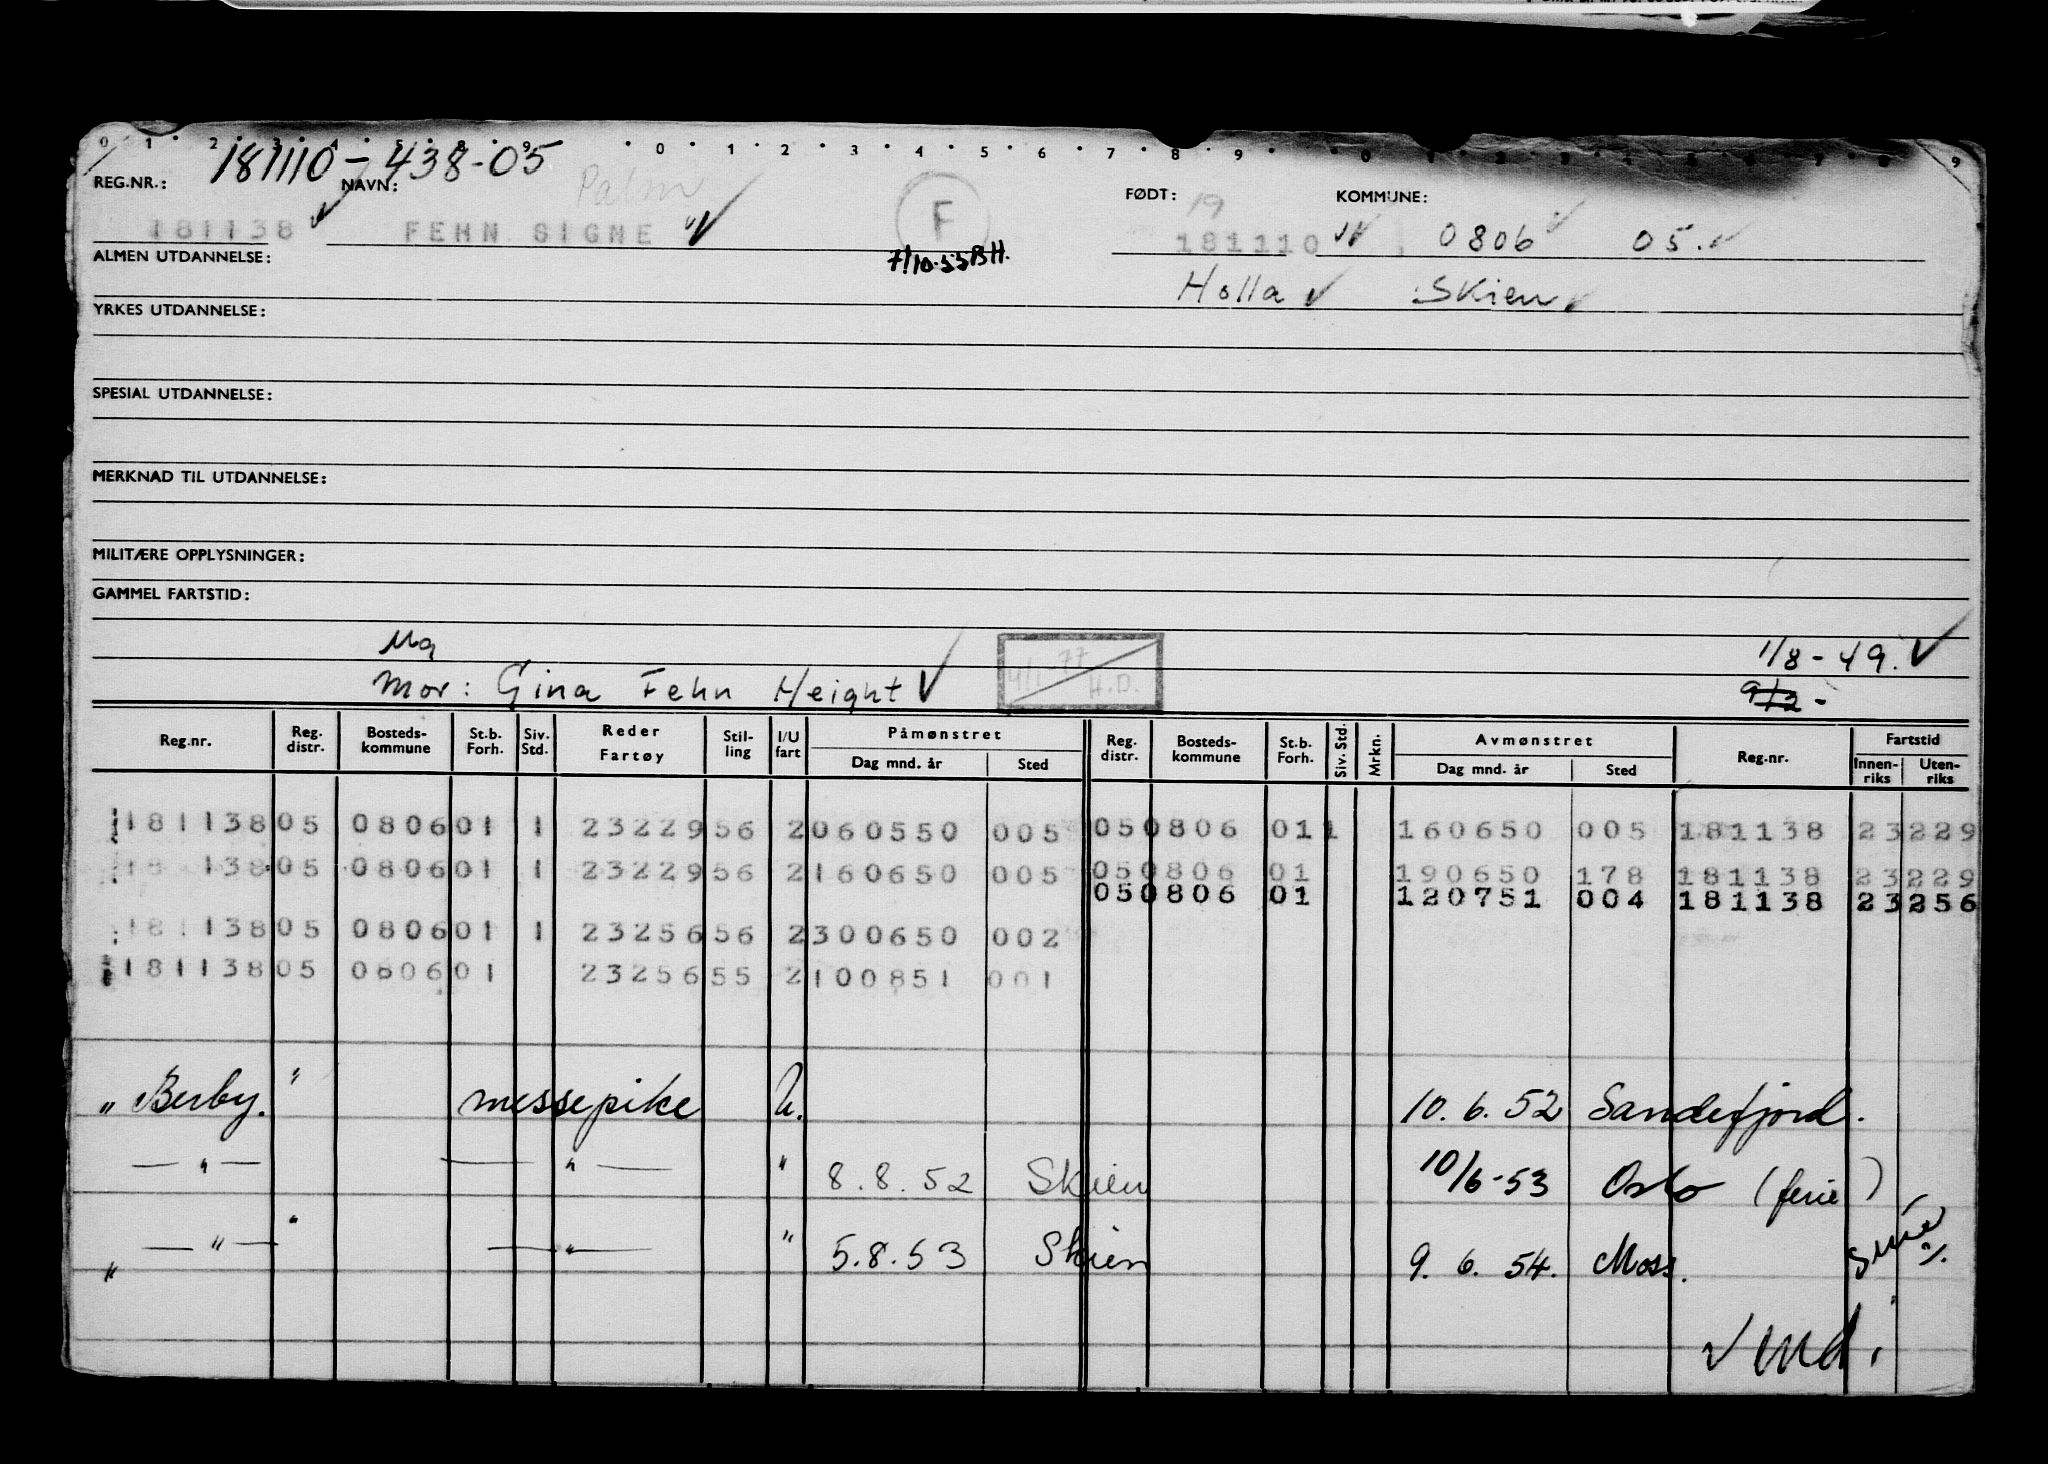 0 1 2 3 4 5 6 7 8 9 0 1 2 3 4 5 6 7 8 9 0 1 2 3 4 5 6 7 8 9
181110-438-05
REG.NR.: NAVN: Palm FØDT: 19 KOMMUNE:
181138 FEHN SIGNE F 181110 0806 05.
ALMEN UTDANNELSE: 7/10.55BH.
Holla Skien
YRKES UTDANNELSE:
SPESIAL UTDANNELSE:
MERKNAD TIL UTDANNELSE:
MILITÆRE OPPLYSNINGER:
GAMMEL FARTSTID:
Ug 1/8-49.
Mor: Gina Fehn Height 4/1-77 H.D. 9/12-
Reg.nr. Reg. distr. Bosteds-kommune St.b. Forh. Siv. Std. Reder Fartøy Stil-ling I/U fart Påmønstret Dag mnd. år Sted Reg. distr. Bosteds-kommune St.b. Forh. Siv. Std. Mrkn. Avmønstret Dag mnd. år Sted Reg.nr. Fartstid Innen-riks Uten-riks
181138 05 0806 01 1 23229 56 2 060550 005 05 0806 01 1 160650 005 181138 23229
18 138 05 0806 01 1 23229 56 2 160650 005 05 0806 01 190650 178 181138 23229
05 0806 01 120751 004 181138 23256
181138 05 0806 01 1 23256 56 2 300650 002
181138 05 0806 01 23256 55 2 100851 001
" Berby. " messepike U. 10.6.52 Sandefjord.
— " — — " — " 8.8.52 Skien 10/6-53 Oslo (ferie)
" — " — " — " — " 5.8.53 Skien 9.6.54. Moss.